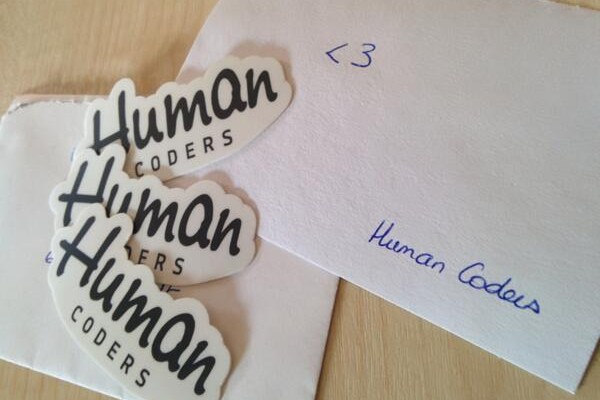 <3
Human Coders
Human
CODERS
Human
DERS
Human
CODERS